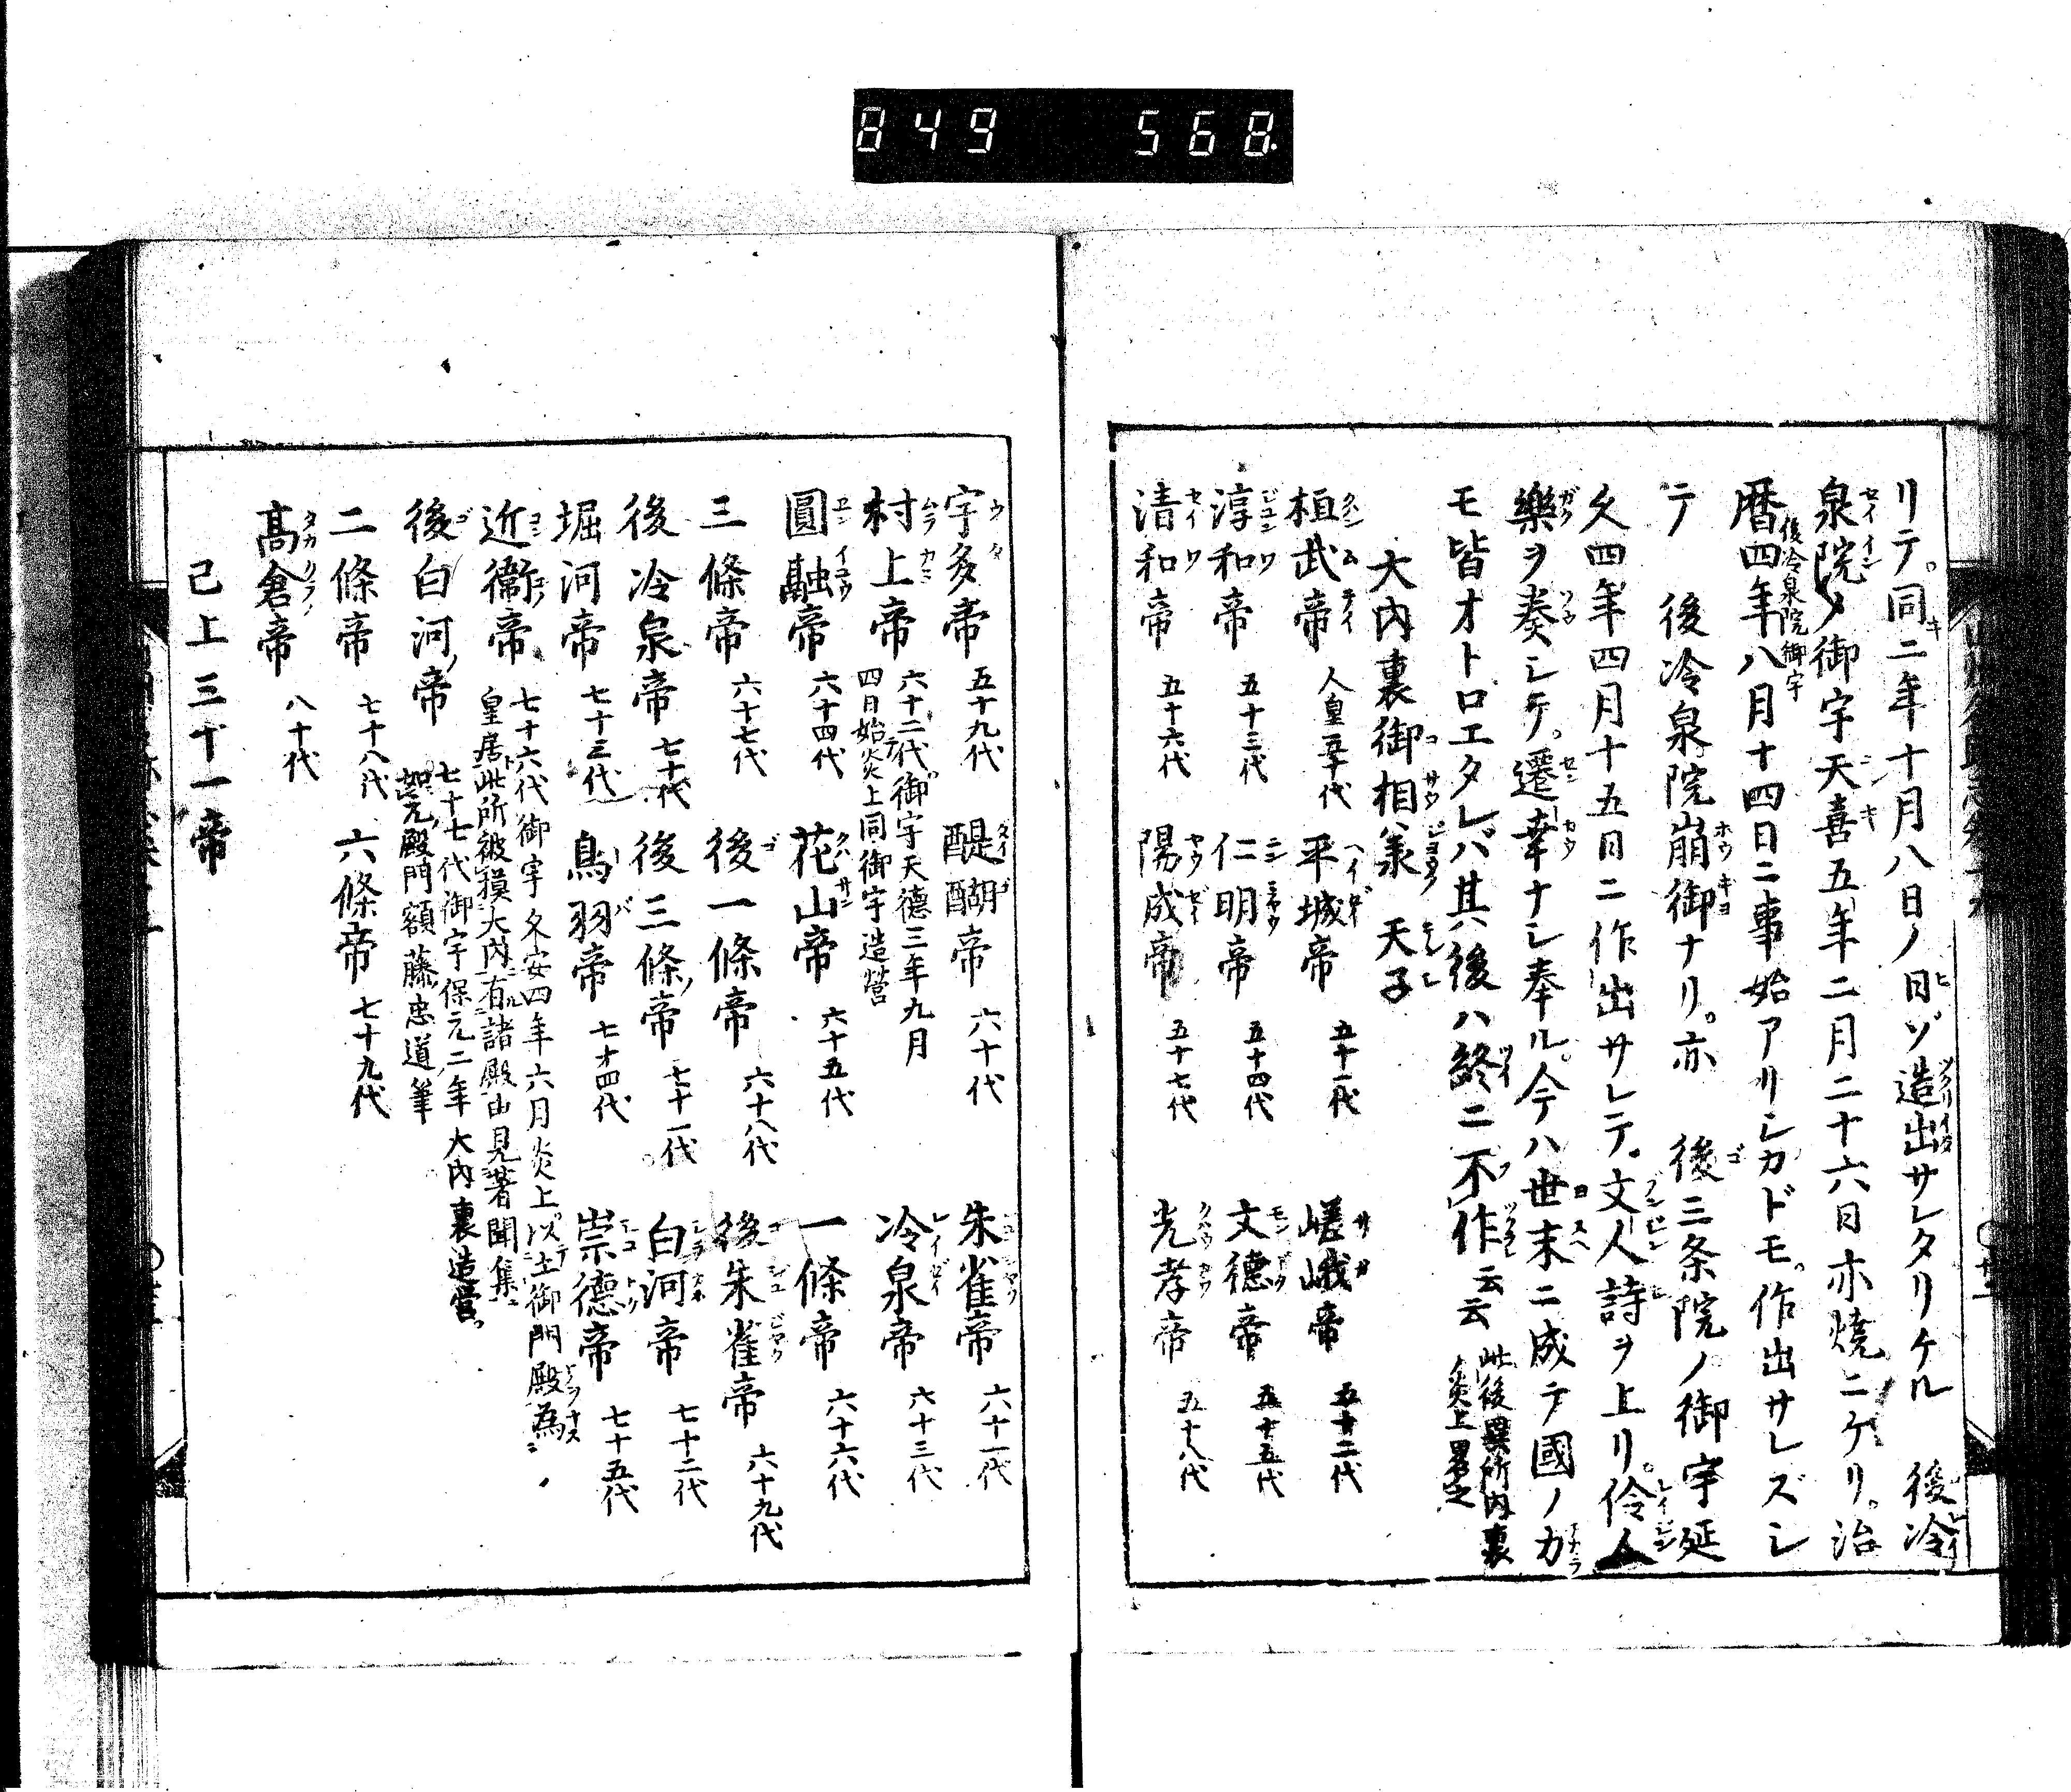 849 568
リテ。同二年十月八日ノ日ゾ造出サレタリケル 後冷
泉院ノ御宇天喜五年二月二十六日亦燒ニケリ。治
暦四年八月十四日ニ事始アリシカドモ。作出サレズシ
後冷泉院御宇
テ 後冷泉院崩御ナリ。亦 後三条院ノ御宇延
久四年四月十五日ニ作出サレテ。文人詩ヲ上リ。伶人
樂ヲ奏シテ。遷幸ナシ奉ル。今ハ世末ニ成テ國ノ力
モ皆オトロエタレバ其後ハ終ニ不作云云 此後異所内裏ノ炎上畧之
大内裏御相承 天子
桓武帝 人皇五十代 平城帝 五十一代 嵯峨帝 五十二代
淳和帝 五十三代 仁明帝 五十四代 文德帝 五十五代
清和帝 五十六代 陽成帝 五十七代 光孝帝 五十八代
宇多帝 五十九代 醍醐帝 六十代 朱雀帝 六十一代
村上帝 六十二代御宇天德三年九月四日始炎上同御宇造營 冷泉帝 六十三代
圓融帝 六十四代 花山帝 六十五代 一條帝 六十六代
三條帝 六十七代 後一條帝 六十八代 後朱雀帝 六十九代
後冷泉帝 七十代 後三條帝 七十一代 白河帝 七十二代
堀河帝 七十三代 鳥羽帝 七十四代 崇德帝 七十五代
近衞帝 七十六代御宇久安四年六月炎上。以土御門殿為皇居此所被摸大内有諸殿由見著聞集
後白河帝 七十七代御宇保元二年大内裏造營。殿門額藤忠道筆
二條帝 七十八代 六條帝 七十九代
髙倉帝 八十代
已上三十一帝